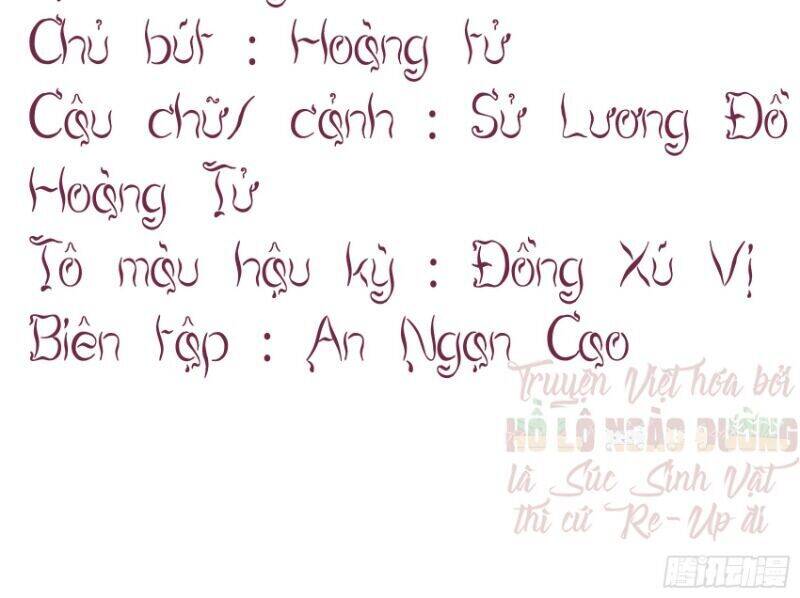 Chủ bút : Hoàng tử
Câu chữ/ cảnh : Sử Lương Đồ
Hoàng Tử
Tô màu hậu kỳ : Đồng Xú Vị
Biên tập : An Ngạn Cao
Truyện Việt hóa bởi
HỒ LÔ NGÀO ĐƯỜNG
là Súc Sinh Vật
thì cứ Re-Up đi
腾讯动漫